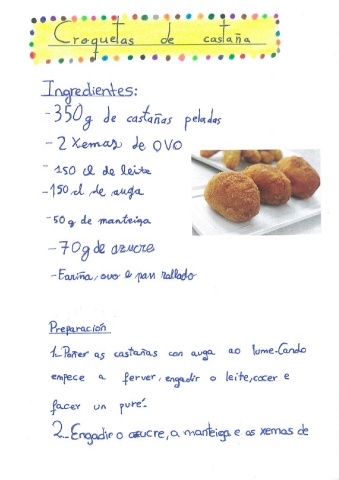 Croquetas de castaña
Ingredientes:
-350g de castañas peladas
-2 Xemas de OVO
-150 cl de leite
-150 cl de auga
-50 g de manteiga
-70g de azucre
-Fariña, ovo e pan rallado
Preparación
1. Poñer as castañas con auga ao lume. Cando
empece a ferver, engadir o leite, cocer e
facer un puré.
2. Engadir o azucre, a manteiga e as xemas de